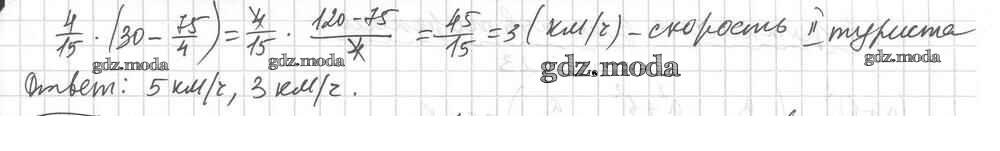 4/15 · (30 - 75/4) = 4/15 · 120-75/4 = 45/15 = 3 (км/ч) - скорость II туриста
gdz.moda gdz.moda gdz.moda gdz.moda
Ответ: 5 км/ч, 3 км/ч.